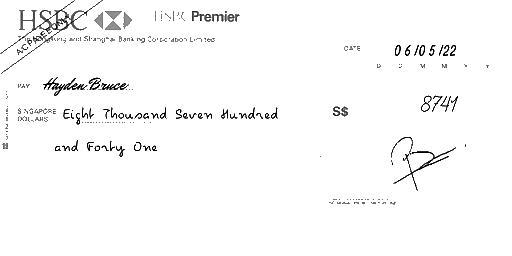 HSBC HSBC Premier
The Hongkong and Shanghai Banking Corporation Limited
DATE 06/05/22
D D M M Y Y
PAY Hayden Bruce
SINGAPORE DOLLARS Eight Thousand Seven Hundred
and Forty One
S$ 8741